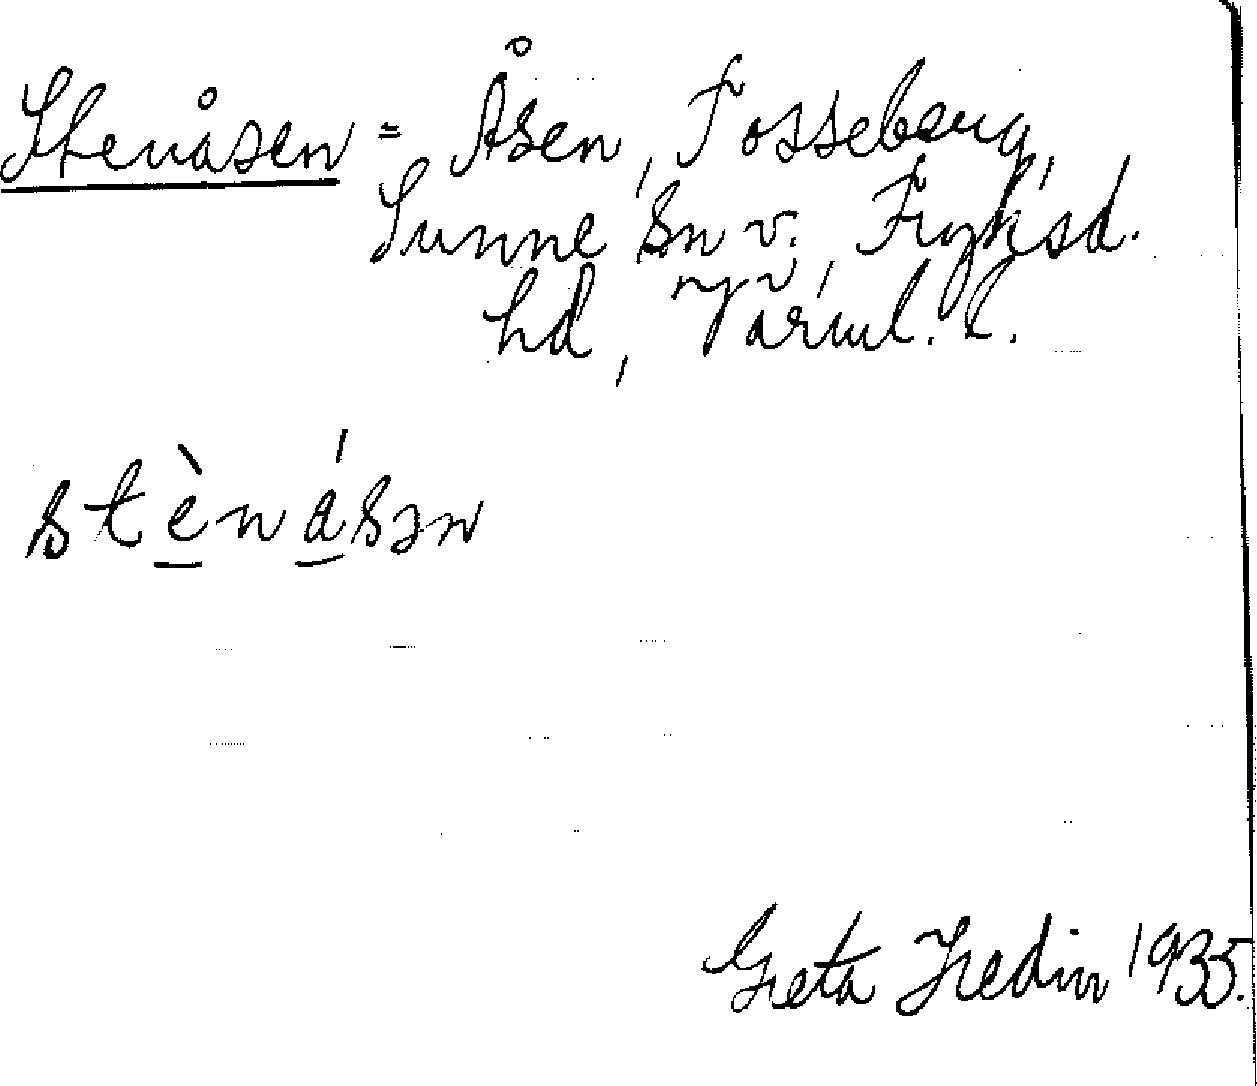 Stenåsen = Åsen, Fosseberg,
Sunne sn v. Fryksd.
hd, Värml. l.
stènásən
Greta Hedin 1935.